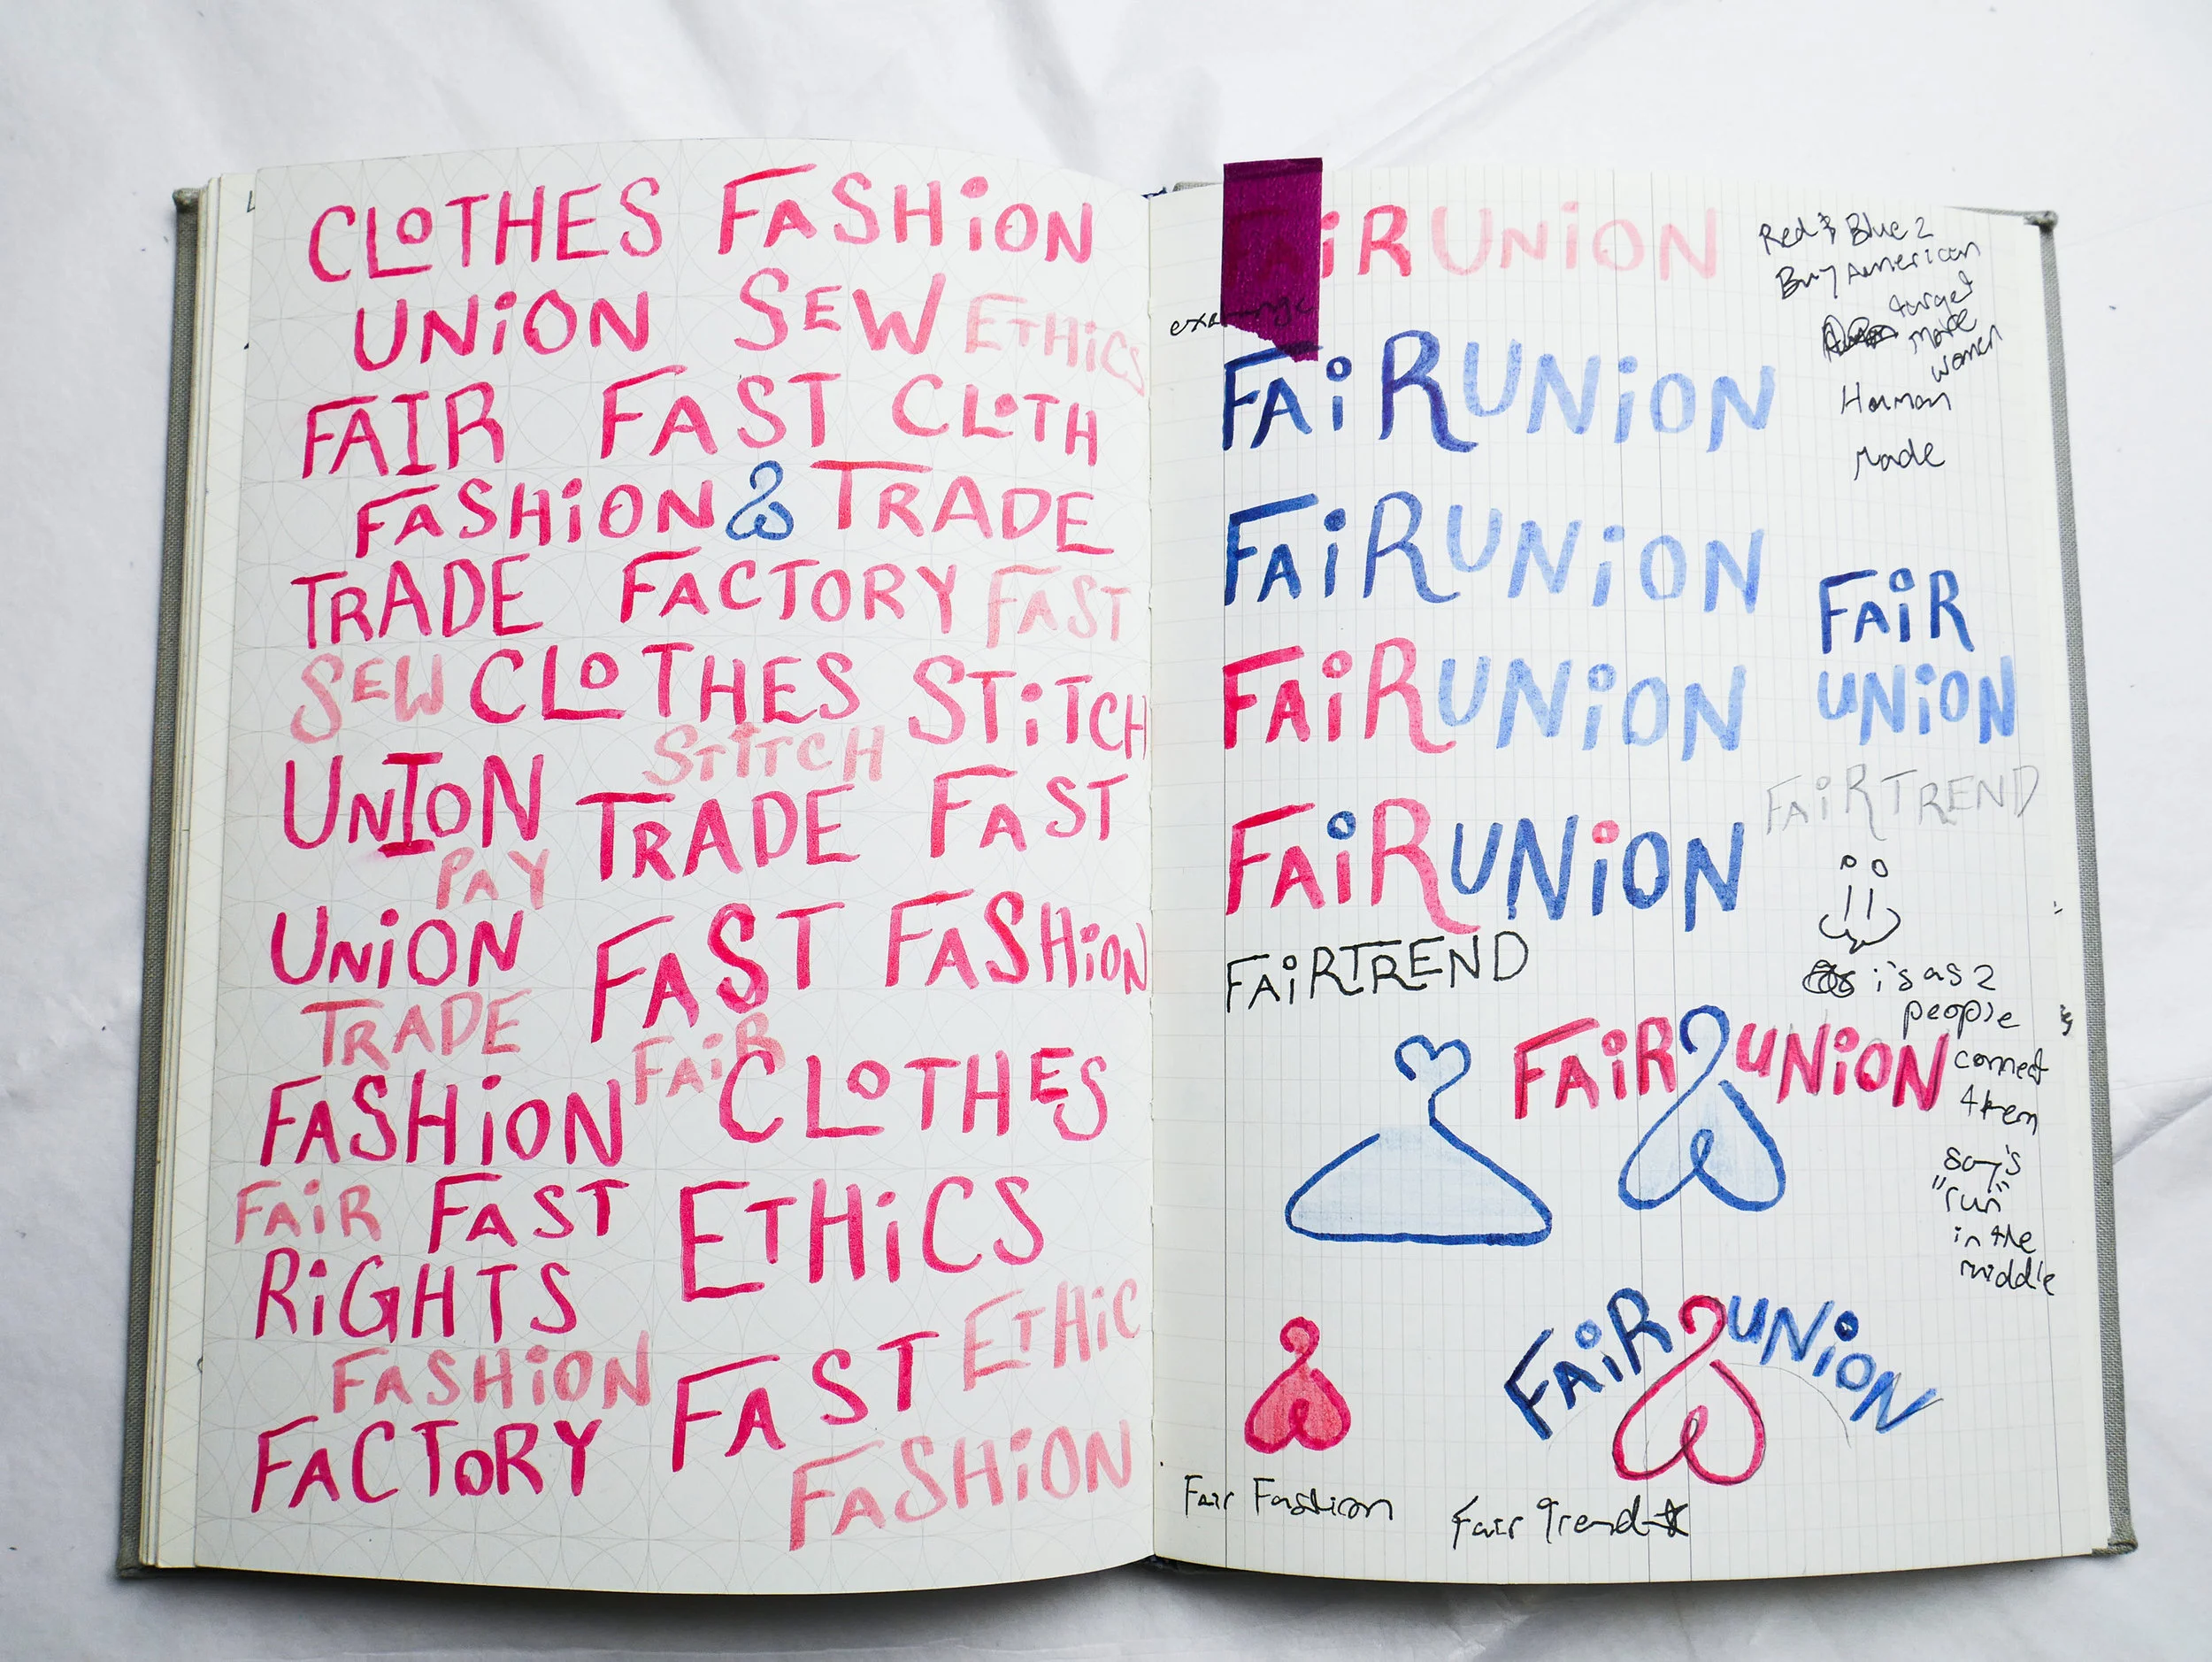 CLOTHES FASHiON
UNiON SEW ETHiCS
FAIR FAST CLOTH
FASHiON & TRADE
TRADE FACTORY FAST
SEW CLOTHES STiTCH
STiTCH
UNION TRADE FAST
PAY
UNiON FAST FASHiON
TRADE FAiR
FASHiON CLOTHES
FAiR FAST ETHiCS
RiGHTS
FASHiON FAST ETHiC
FACTORY FASHiON
FAiRUNiON
exchange
FAiRUNiON
FAiRUNiON
FAiRUNiON
FAiRUNiON
FAiRTREND
FAiR UNiON
FAiR UNiON
Fair Fashion
Fair Trend
Red & Blue 2
Buy American
target
more
women
Human
Made
FAiR
UNiON
FAiRTREND
i's as 2
people
connect
them
say's
"run"
in the
middle